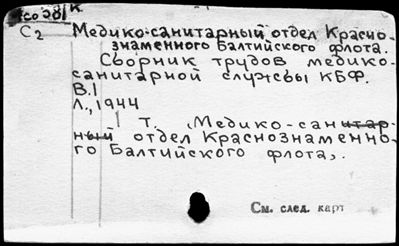 С2 Медико-санитарный отдел Красно-
знаменного Балтийского флота.
Сборник трудов медико-
санитарной службы КБФ.
В.1
Л., 1944
1 Т. „Медико-санитар-
ный отдел Краснознаменно-
го Балтийского флота„.
См. след. карт